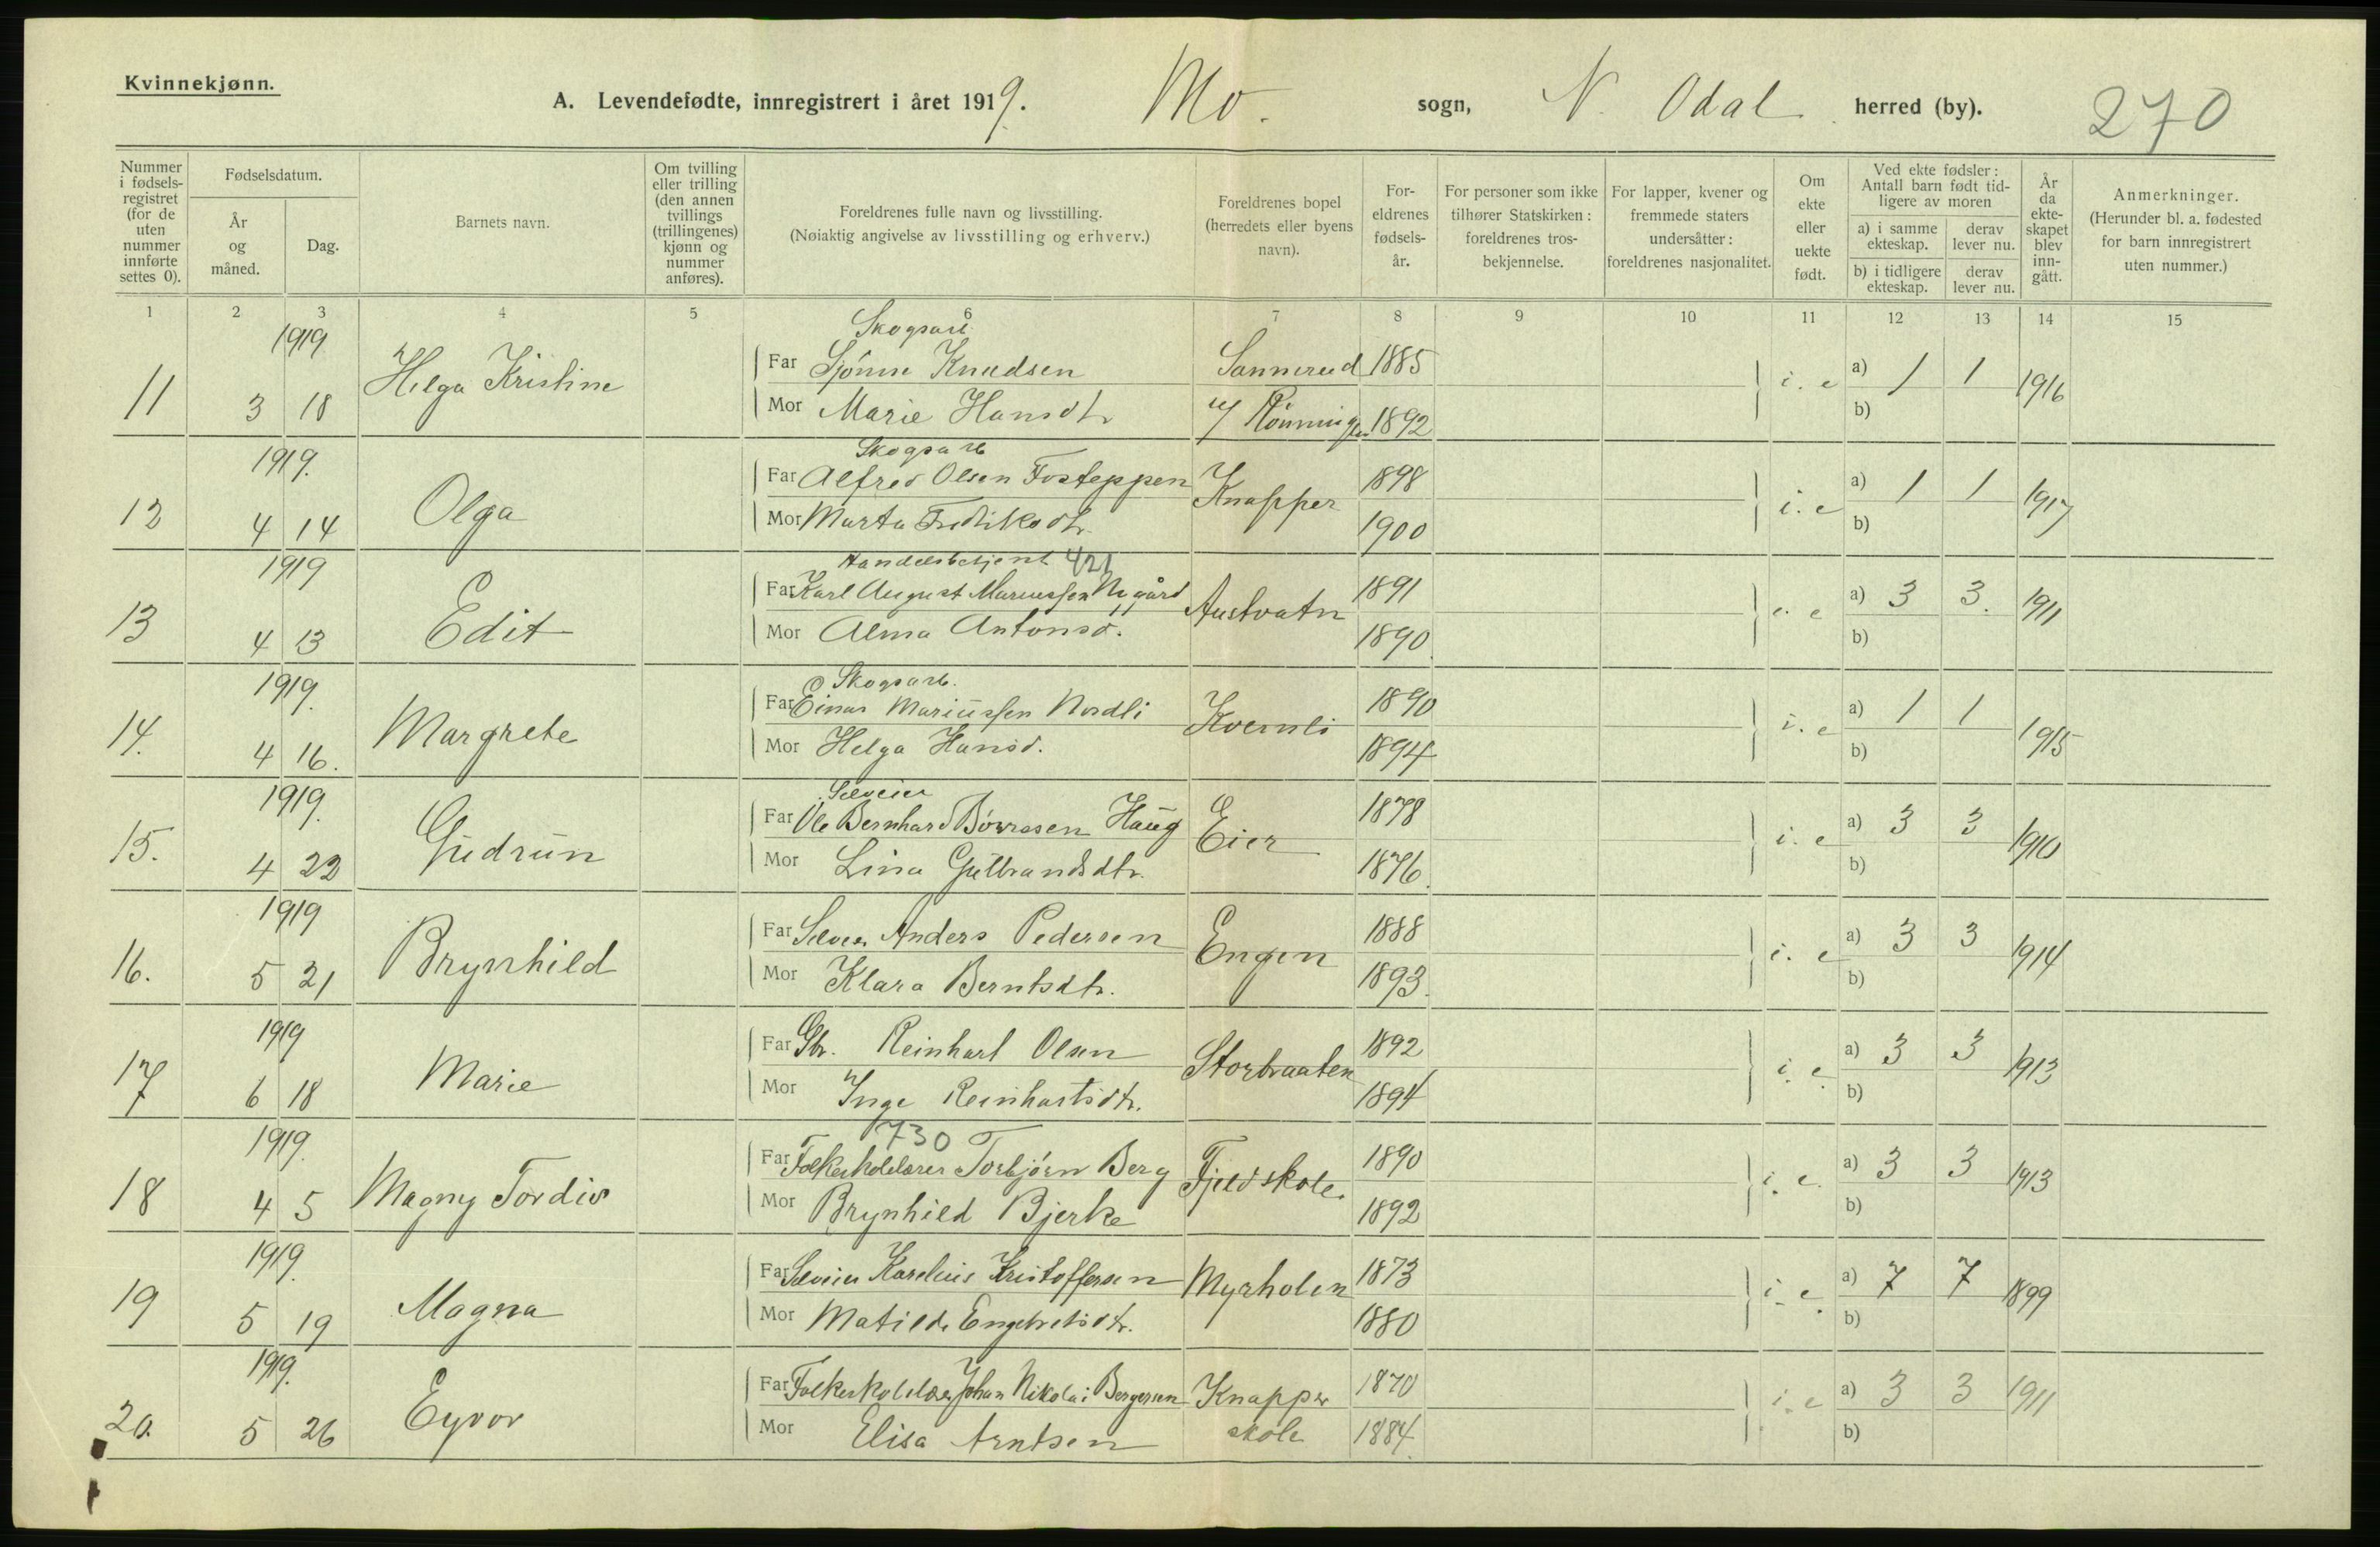 Kvinnekjønn.
A. Levendefødte, innregistrert i året 1919. Mo. sogn, N. Odal herred (by). 270
Nummer i fødsels- registret (for de uten nummer innførte settes 0).
Fødselsdatum.
År og måned.
Dag.
Barnets navn.
Om tvilling eller trilling (den annen tvillings (trillingenes) kjønn og nummer anføres).
Foreldrenes fulle navn og livsstilling.
(Nøiaktig angivelse av livsstilling og erhverv.)
Foreldrenes bopel (herredets eller byens navn).
For- eldrenes fødsels- år.
For personer som ikke tilhører Statskirken: foreldrenes tros- bekjennelse.
For lapper, kvener og fremmede staters undersåtter: foreldrenes nasjonalitet.
Om ekte eller uekte født.
Ved ekte fødsler: Antall barn født tid- ligere av moren
a) i samme ekteskap.
derav lever nu.
b) i tidligere ekteskap.
derav lever nu.
År da ekte- skapet blev inn- gått.
Anmerkninger.
(Herunder bl. a. fødested for barn innregistrert uten nummer.)
1 2 3 4 5 6 7 8 9 10 11 12 13 14 15
1919 Skogsarb.
Helga Kristine Far Knudsen Sannerud 1885 i. e a) 1 1 1916
11 3 18 Mor Marie Hansdtr 1892 b)
1919. Skogsarb
Olga Far Alfred Olsen Fosteppen Knapper 1898 i. e a) 1 1 1917
12 4 14 Mor Marta Fredriksdtr. 1900 b)
1919 Handelsbetjent 421
Edit Far Karl August Mariussen Nygård Austvatn 1891 e. e a) 3 3. 1911
13 4 13 Mor Alma Antonsd. 1890. b)
1919. Skogsarb.
Margrete Far Einar Mariussen Nordli Kvernli 1890 i. e a) 1 1 1915
14. 4 16. Mor Helga Hansd. 1894 b)
1919. Selveier
Gudrun Far Ole Bernhard Børresen Haug Eier 1878 i. e a) 3 3 1910
15. 4 22 Mor Lina Gulbrandsdtr. 1876. b)
1919
Brynhild Far Selveier Anders Pedersen Engen 1888 i. e a) 3 3 1914
16. 5 21 Mor Klara Berntsdtr. 1893. b)
1919
Marie Far Gbr. Reinhart Olsen Storbraaten 1892 i. e. a) 3 3 1913
17 6 18 Mor Inga Reinhartsdtr. 1894 b)
1919. 730
Magny Tordis Far Folkeskolelærer Torbjørn Berg Fjeldskole. 1890 i. e. a) 3 3 1913
18 4 5 Mor Brynhild Bjerke 1892 b)
1919.
Magna Far Selveier Karelius Kristoffersen Myrholen 1873 i. e. a) 7 7 1899
19 5 19 Mor Matilde Engebretsdtr. 1880 b)
1919.
Eyvor Far Folkeskolelærer Johan Nikolai Bergersen Knapper 1870 i. e a) 3 3 1911
20. 5 26 Mor Elisa Arntsen skole 1884. b)